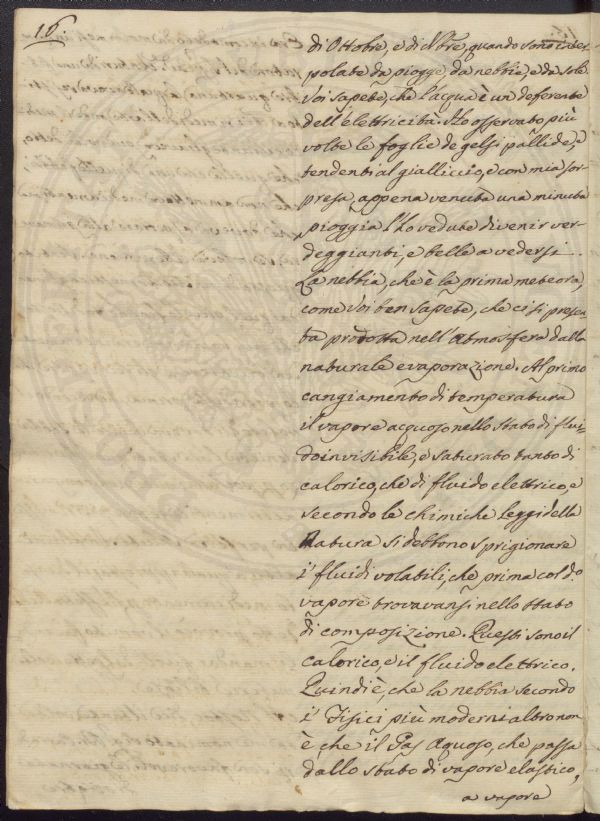 16.
di Ottobre, e di Nbre, quando sono inter-
polate da piogge, da nebbie, e da sole
Voi sapete, che l'acqua è un deferente
dell'elettricità. Ho osservato più
volte le foglie de gelsi pallide, e
tendenti al gialliccio, e con mia sor-
presa, appena venuta una minuta
pioggia l'ho vedute divenir ver-
deggianti, e belle a vedersi.
La nebbia, che è la prima meteora,
come Voi ben sapete, che ci si presen-
ta prodotta nell'Atmosfera dalla
naturale evaporazione. Al primo
cangiamento di temperatura
il vapore acquoso nello stato di flui-
do invisibile, e saturato tanto di
calorico, che di fluido elettrico, e
secondo le chimiche Leggi della
Natura si debbono sprigionare
i' fluidi volatili, che prima col do
vapore trovavansi nello stato
di composizione. Questi sono il
calorico, e il fluido elettrico.
Quindi è, che la nebbia secondo
i' Fisici più moderni altro non
è che il Gas Aquoso, che passa
dallo stato di vapore elastico,
a vapore